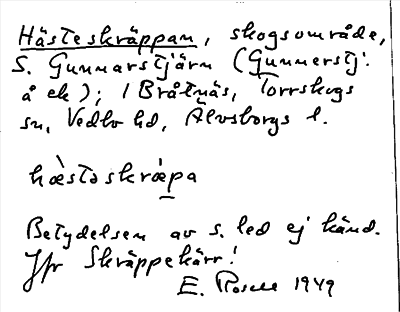 Hästeskräppan, skogsområde,
S. Gunnarstjärn (Gunnerstj.
å ek); i Bråtnäs, Torrskogs
sn, Vedbo hd, Älvsborgs l.
hæ̀stəskræ̀pa
Betydelsen av s. led ej känd.
Jfr Skräppekärr!
E. Rosell 1949